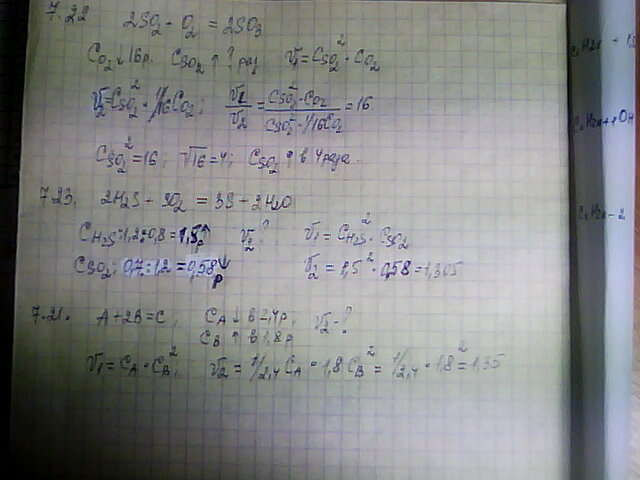 7.22 2SO2 + O2 = 2SO3
CO2 ↓ 16р. CSO2 ↑ ? раз V1 = CSO2² · CO2
V2 = CSO2² · 1/16 CO2; V1/V2 = CSO2² · CO2 / CSO2² · 1/16 CO2 = 16
CSO2² = 16; √16 = 4; CSO2 ↑ в 4 раза.
7.23. 2H2S + SO2 = 3S + 2H2O
CH2S: 1,2:0,8 = 1,5р↑ V2 ? V1 = CH2S² · CSO2
CSO2: 0,7:1,2 = 0,58р↓ V2 = 1,5² · 0,58 = 1,305
7.21. A + 2B = C; CA ↓ в 2,4р; V2 - ?
CB ↑ в 1,8р
V1 = CA · CB²; V2 = 1/2,4 CA · 1,8 CB² = 1/2,4 · 1,8² = 1,35